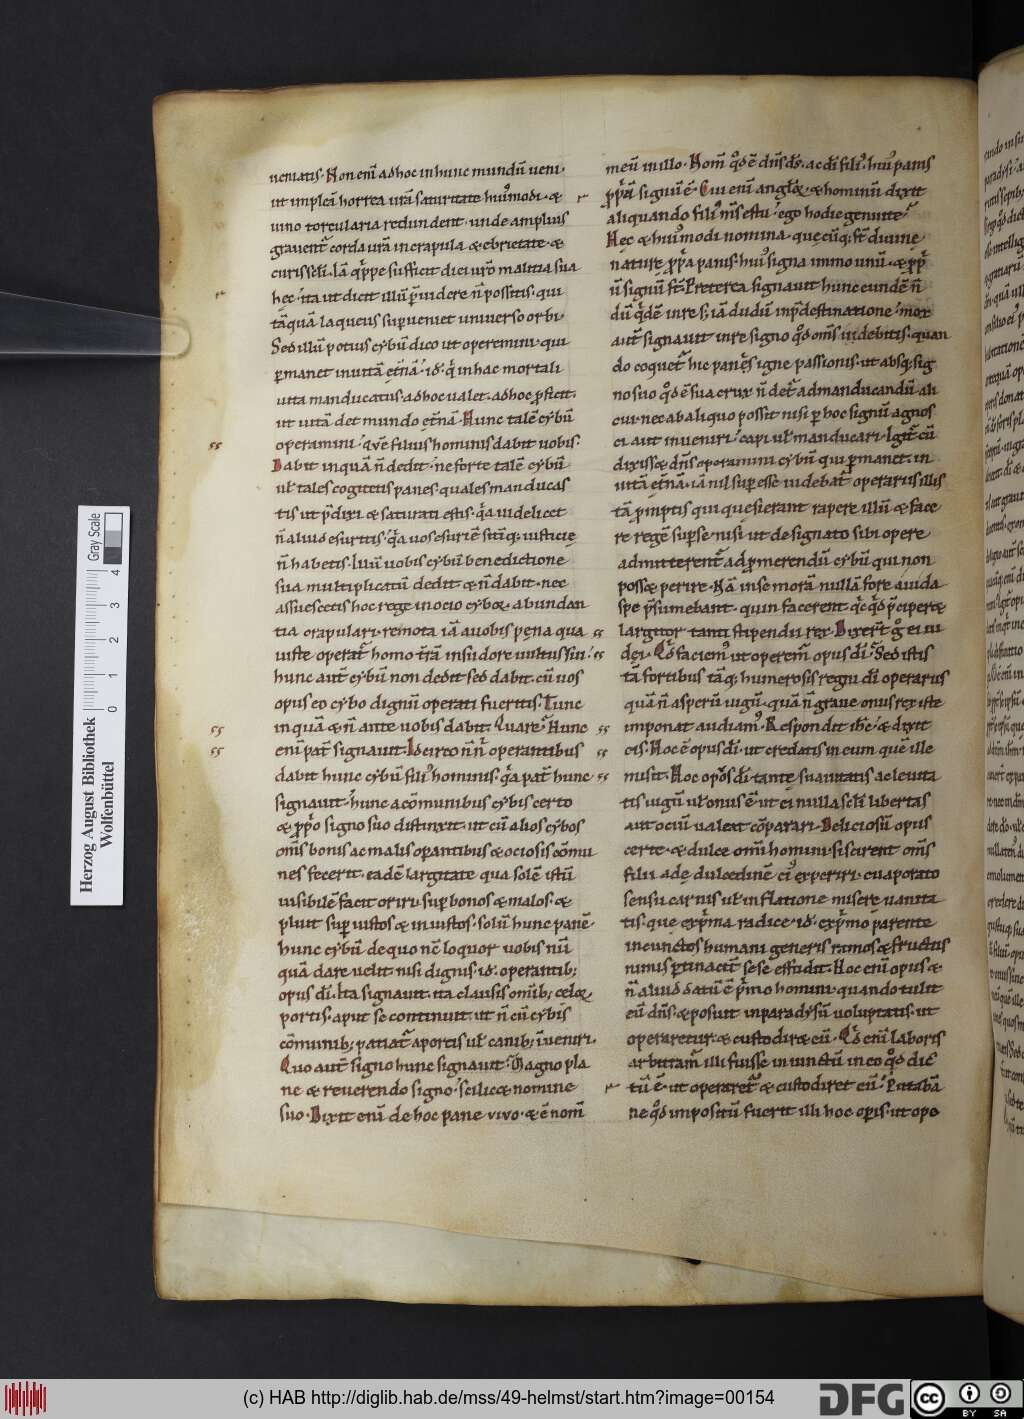 ueniatis. Non eni̅ ad hoc in hunc mundu̅ ueni.
ut implea̅ horrea ur̅a saturitate hui᷒modi. &
uino torcularia redundent. unde amplius
grauent᷑ corda ur̅a in crapula & ebrietate. &
curis sc̅li. Ia̅ q̅ppe sufficit diei ur̅o malitia sua
hec. ita ut dicit illu̅ p̅uidere n̅ possitis. qui
ta̅qua̅ laqueus sup̲ueniet uniuerso orbi.
Sed illu̅ potius cybu̅ dico ut operemini. qui
p̲manet in uita̅ et̅na̅. id. q̇ in hac mortali
uita manducatus adhoc ualet. adhoc p̲ficit.
ut uita̅ det mundo et̅na̅. Hunc tale̅ cybu̅
operamini. que̅ filius hominis dabit uobis.
Dabit inqua̅ n̅ dedit. ne forte tale̅ cybu̅
ul̅ tales cogitetis panes. quales manducas
tis ut p̅dixi & saturati estis. q̇a uidelicet
n̅ aliud esuritis. q̇a uos esurie̅ siti̅q; iusticie̜
n̅ habetis. Illu̅ uobis cybu̅ benedictione
sua multiplicatu̅ dedit & n̅ dabit. nec
assuescetis hoc rege in ocio cyboꝝ abundan
tia crapulari. remota ia̅ a uobis pe̜na qua
iuste operat᷑ homo t̅ra̅ in sudore uultus sui.
hunc aut̅ cybu̅ non dedit sed dabit. cu̅ uos
opus eo cybo dignu̅ operati fueritis. Tunc
inqua̅ & n̅ ante uobis dabit. Quare? Hunc
eni̅ pat̅ signauit. Idcirco n̅ n̅ operantibus
dabit hunc cybu̅ fili᷒ hominis. q̇a pat̅ hunc
signauit. hunc a co̅munibus cybis certo
& p̲p̅o signo suo distinxit. ut cu̅ alios cybos
om̅s bonis ac malis op̲antibus & ociosis co̅mu
nes fecerit. eade̅ largitate qua sole̅ istu̅
uisibile̅ facit oriri sup̲ bonos & malos. &
pluit sup̲ iustos & iniustos. solu̅ hunc pane̅
hunc cybu̅ de quo nc̅ loquor uobis nu̅
qua̅ dare uelit nisi dignis id. operantib;
opus di̅. Ita signauit. ita clausis omib; celoꝝ
portis. aput se continuit. ut n̅ cu̅ cybis
co̅munib; patiat᷑ a porcis ul̅ canib; i̅ueniri.
Quo aut̅ signo hunc signauit? Magno pla
ne & reuerendo signo. scilic& nomine
suo. Dixit eni̅ de hoc pane uiuo. & e̅ nom̅
meu̅ in illo. Nom̅ q̊d e̅ dn̅s ds̅. ac di̅ fili᷒. hui᷒ panis
p̲p̅iu̅ signu̅ e̅. Cui eni̅ angl̅oꝝ & hominu̅ dixit
aliquando fili᷒ m̅s es tu. ego hodie genui te?
Hec & hui᷒modi nomina. que̜cu̅q; st̅ diuine̜
nature p̲p̅a panis. hui᷒ signa immo unu̅. & p̲p̅
u̅ signu̅ st̅. Preterea signauit hunc eunde̅ n̅
du̅ q̇de̅ in re s; ia̅ dudu̅ in p̅destinatione. mox
aut̅ signauit in re signo q̊d om̅s uidebitis. quan
do coquet᷑ hic panis igne passionis. ut absq; sig
no suo q̊d e̅ sua crux n̅ det᷑ ad manducandu̅ ali
cui. nec ab aliquo possit nisi p̲ hoc signu̅ agnos
ci aut inueniri. capi ul̅ manducari. Igit᷑ cu̅
dixiss& dn̅s operamini cybu̅ qui p̲manet in
uita̅ et̅na̅. ia̅ nil sup̲esse uidebat᷑ operariis illis
ta̅ p̲mptis qui que̜sierant rapere illu̅ & face
re rege̅ sup̲ se. nisi ut designato sibi opere
admitterent᷑ ad p̲merendu̅ cybu̅ qui non
poss& perire. Na̅ in se mora̅ nulla̅ fore auida
spe p̅sumebant. quin facerent q̇cq̇d p̅ciper&
largitor tanti stipendii rex. Dixer̅t g̊ ei iu
dei. Q̇d faciem᷒ ut operem᷑ opus di̅? Sed istis
ta̅ fortibus ta̅q; humerosis regni di̅ operariis
qua̅ n̅ asperu̅ iugu̅. qua̅ n̅ graue onus rex iste
imponat audiam᷒. Respondit ihc̅. & dixit
eis. Hoc e̅ opus di̅. ut credatis in eum que̅ ille
misit. Hoc op᷒ di̅ tante̜ suauitatis ac leuita
tis iugu̅ ul̅ onus e̅ ut ei nulla sc̅li libertas
aut ociu̅ ualeat co̅parari. Deliciosu̅ opus
certe. & dulce om̅i homini. si scirent om̅s
filii ade̜ dulcedine̅ ei᷒ experiri. euaporato
sensu carnis ul̅ inflatione misere̜ uanita
tis. que exp̅ma radice. id. ex p̅mo parente
in cunctos humani generis ramos & fructus
nimis p̲tinacit̅ sese effudit. Hoc eni̅ opus &
n̅ aliud datu̅ e̅ p̅mo homini. quando tulit
eu̅ dn̅s. & posuit in paradysu̅ uoluptatis. ut
operaretur. & custodir& eu̅. Q̇d eni̅ laboris
arbitram᷑ illi fuisse iniunctu̅ in eo q̊d dic
tu̅ e̅. ut operaret᷑ & custodiret eu̅? Putaba̅
ne q̊d impositu̅ fuerit illi hoc op̲is. ut ope
Herzog August Bibliothek
Wolfenbüttel
Gray Scale
0 1 2 3 4
(c) HAB http://diglib.hab.de/mss/49-helmst/start.htm?image=00154
DFG
cc BY SA